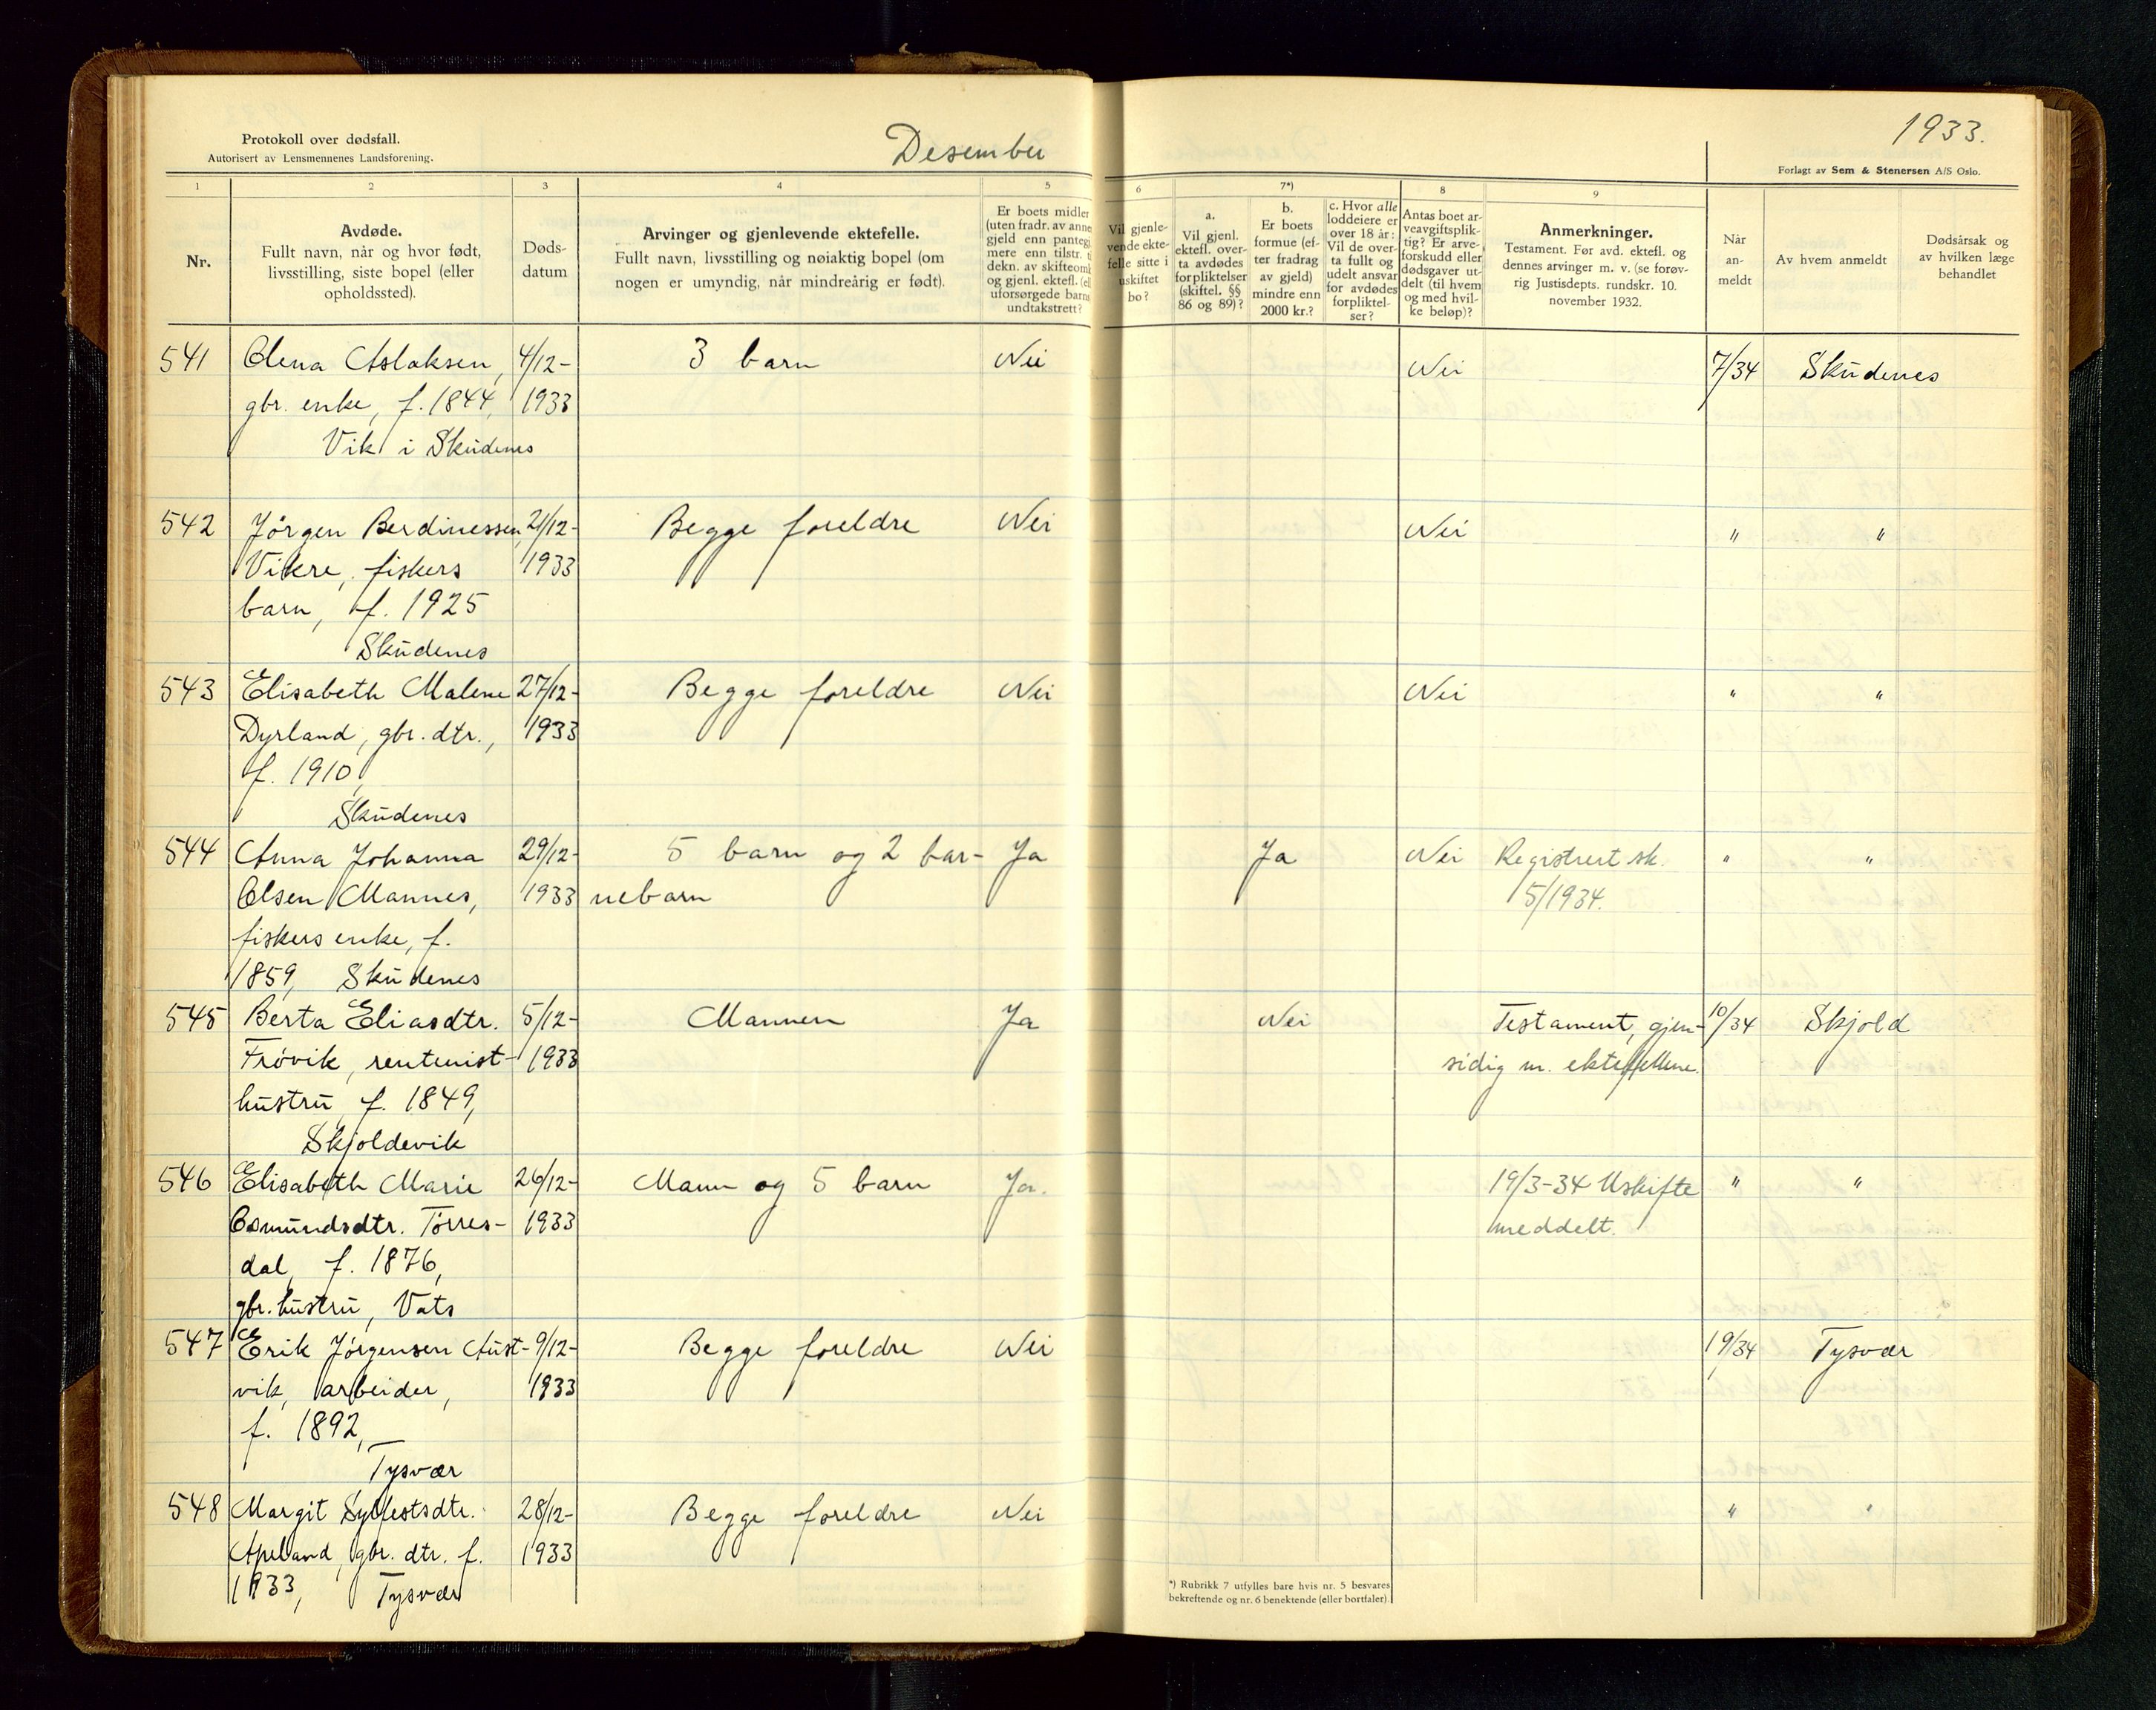 Protokoll over dødsfall.
Autorisert av Lensmennenes Landsforening.
Desember
1933.
Forlagt av Sem & Stenersen A/S Oslo.
1 2 3 4 5 6 7*) 8 9
Nr.
Avdøde.
Fullt navn, når og hvor født,
livsstilling, siste bopel (eller
opholdssted).
Døds-
datum
Arvinger og gjenlevende ektefelle.
Fullt navn, livsstilling og nøiaktig bopel (om
nogen er umyndig, når mindreårig er født).
Er boets midler
(uten fradr. av anne
gjeld enn pantegj.
mere enn tilstr. t
dekn. av skifteomk
og gjenl. ektefl. (el
uforsørgede barns
undtakstrett?
Vil gjenle-
vende ekte-
felle sitte i
uskiftet
bo?
a.
Vil gjenl.
ektefl. over-
ta avdødes
forpliktelser
(skiftel. §§
86 og 89)?
b.
Er boets
formue (ef-
ter fradrag
av gjeld)
mindre enn
2000 kr.?
c. Hvor alle
loddeiere er
over 18 år:
Vil de over-
ta fullt og
udelt ansvar
for avdødes
forpliktel-
ser?
Antas boet ar-
veavgiftsplik-
tig? Er arve-
forskudd eller
dødsgaver ut-
delt (til hvem
og med hvil-
ke beløp)?
Anmerkninger.
Testament. Før avd. ektefl. og
dennes arvinger m. v. (se forøv-
rig Justisdepts. rundskr. 10.
november 1932.
Når
an-
meldt
Av hvem anmeldt
Dødsårsak og
av hvilken læge
behandlet
541 Olena Aslaksen, 4/12- 3 barn Nei Nei 7/34 Skudenes
gbr. enke, f. 1844, 1933
Vik i Skudenes
542 Jørgen Berdinessen 21/12- Begge foreldre Nei Nei " "
Vikre, fiskers 1933
barn, f. 1925
Skudenes
543 Elisabeth Malene 27/12- Begge foreldre Nei Nei " "
Dyrland, gbr. dtr., 1933
f. 1910,
Skudenes
544 Anna Johanna 29/12- 5 barn og 2 bar- Ja Ja Nei Registrert sk. " "
Olsen Mannes, 1933 nebarn 5/1934.
fiskers enke, f.
1859, Skudenes
545 Berta Eliasdtr. 5/12- Mannen Ja Nei Testament, gjen- 10/34 Skjold
Frøvik, rentenist- 1933 sidig m. ektefellene.
hustru, f. 1849,
Skjoldevik
546 Elisabeth Marie 26/12- Mann og 5 barn Ja. 19/3-34 Uskifte " "
Osmundsdtr. Tørres- 1933 meddelt.
dal, f. 1876,
gbr. hustru, Vats
547 Erik Jørgensen Aust- 9/12- Begge foreldre Nei 19/34 Tysvær
vik, arbeider, 1933
f. 1892,
Tysvær
548 Margit Sylfestsdtr. 28/12- Begge foreldre Nei " "
Apeland, gbr. dtr. f. 1933
1933, Tysvær
*) Rubrikk 7 utfylles bare hvis nr. 5 besvares
bekreftende og nr. 6 benektende (eller bortfaler).